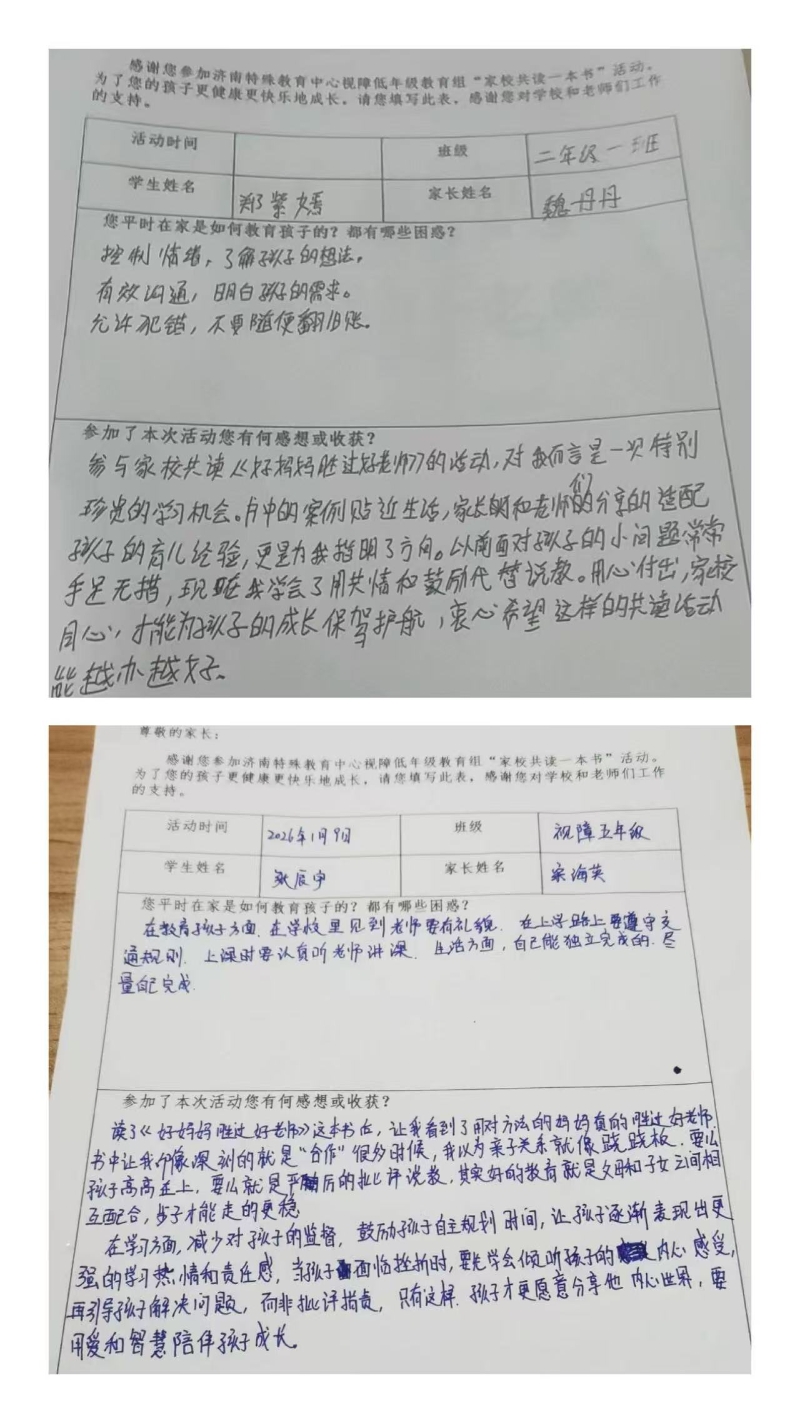 感谢您参加济南特殊教育中心视障低年级教育组“家校共读一本书”活动。
为了您的孩子更健康更快乐地成长，请您填写此表，感谢您对学校和老师们工作
的支持。
活动时间 班级 二年级一班
学生姓名 郑紫嫣 家长姓名 魏丹丹
您平时在家是如何教育孩子的？都有哪些困惑？
控制情绪，了解孩子的想法。
有效沟通，明白孩子的需求。
允许犯错，不要随便翻旧账。
参加了本次活动您有何感想或收获？
参与家校共读《好妈妈胜过好老师》的活动，对我而言是一次特别
珍贵的学习机会。书中的案例贴近生活，家长朋和老师们的分享的适配
孩子的育儿经验，更是为我指明了方向。以前面对孩子的小问题常常
手足无措，现在我学会了用共情和鼓励代替说教。用心付出，家校
同心，才能为孩子的成长保驾护航，衷心希望这样的共读活动
能越办越好。
尊敬的家长：
感谢您参加济南特殊教育中心视障低年级教育组“家校共读一本书”活动。
为了您的孩子更健康更快乐地成长，请您填写此表，感谢您对学校和老师们工作
的支持。
活动时间 2026年1月9日 班级 视障五年级
学生姓名 耿辰宇 家长姓名 梁海英
您平时在家是如何教育孩子的？都有哪些困惑？
在教育孩子方面，在学校里见到老师要有礼貌．在上学路上要遵守交
通规则．上课时要认真听老师讲课．生活方面，自己能独立完成的．尽
量自己完成．
参加了本次活动您有何感想或收获？
读了《好妈妈胜过好老师》这本书后，让我看到了用对方法的妈妈真的胜过好老师．
书中让我印像深刻的就是“合作”很多时候，我以为亲子关系就像跷跷板．要么
孩子高高在上．要么就是严厉的批评说教，其实好的教育就是父母和子女之间相
互配合，步子才能走的更稳
在学习方面，减少对孩子的监督，鼓励孩子自主规划时间，让孩子逐渐表现出更
强的学习热情和责任感，当孩子面临挫折时，要先学会倾听孩子的内心感受，
再引导孩子解决问题，而非批评指责，只有这样．孩子才更愿意分享他内心世界，要
用爱和智慧陪伴孩子成长。